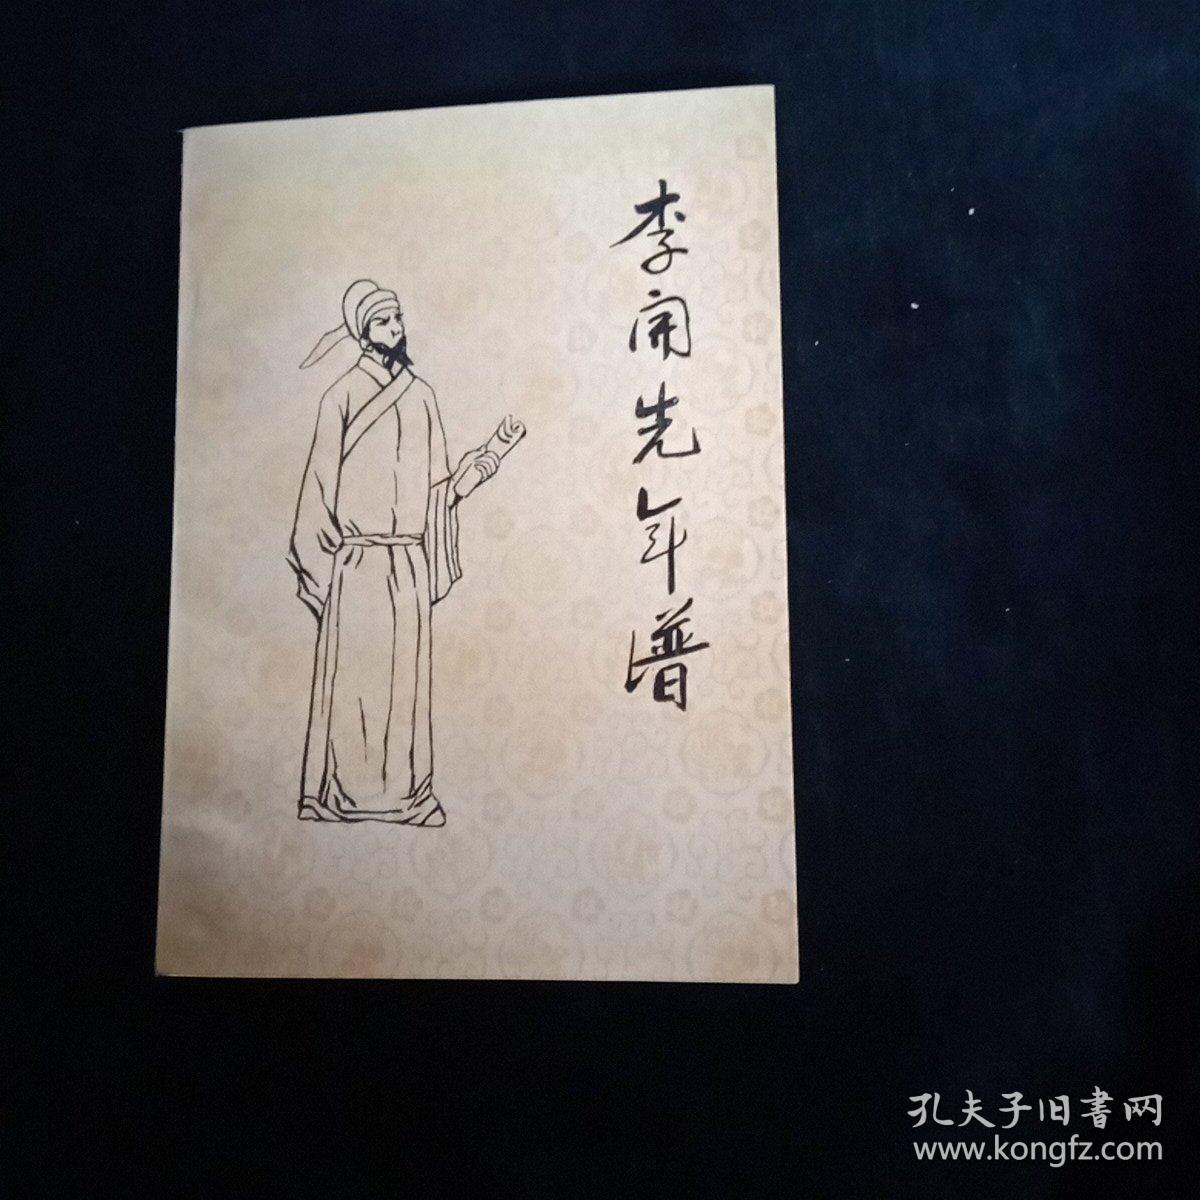 李開先年譜
孔夫子旧書网
www.kongfz.com